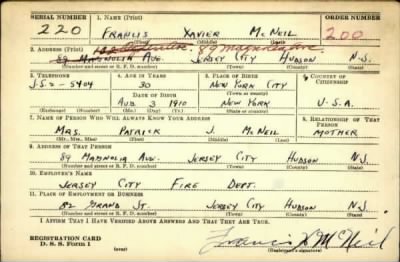 SERIAL NUMBER 1. NAME (Print) ORDER NUMBER
220 FRANCIS XAVIER McNEIL 200
(First) (Middle) (Last)
2. ADDRESS (Print)
89 MAGNOLIA AVE. JERSEY CITY HUDSON N.J.
(Number and street or R. F. D. number) (Town) (County) (State)
3. TELEPHONE 4. AGE IN YEARS 5. PLACE OF BIRTH 6. COUNTRY OF CITIZENSHIP
30 NEW YORK CITY
DATE OF BIRTH (Town or county)
AUG 3 1910 NEW YORK U.S.A.
(Exchange) (Number) (Mo.) (Day) (Yr.) (State or country)
7. NAME OF PERSON WHO WILL ALWAYS KNOW YOUR ADDRESS 8. RELATIONSHIP OF THAT PERSON
MRS. PATRICK J. McNEIL MOTHER
(Mr., Mrs., Miss) (First) (Middle) (Last)
9. ADDRESS OF THAT PERSON
89 MAGNOLIA AVE. JERSEY CITY HUDSON N.J.
(Number and street or R. F. D. number) (Town) (County) (State)
10. EMPLOYER'S NAME
JERSEY CITY FIRE DEPT.
11. PLACE OF EMPLOYMENT OR BUSINESS
82 GRAND ST. JERSEY CITY HUDSON N.J.
(Number and street or R. F. D. number) (Town) (County) (State)
I AFFIRM THAT I HAVE VERIFIED ABOVE ANSWERS AND THAT THEY ARE TRUE.
REGISTRATION CARD
D. S. S. Form 1 (over) Francis X McNeil
(Registrant's signature)